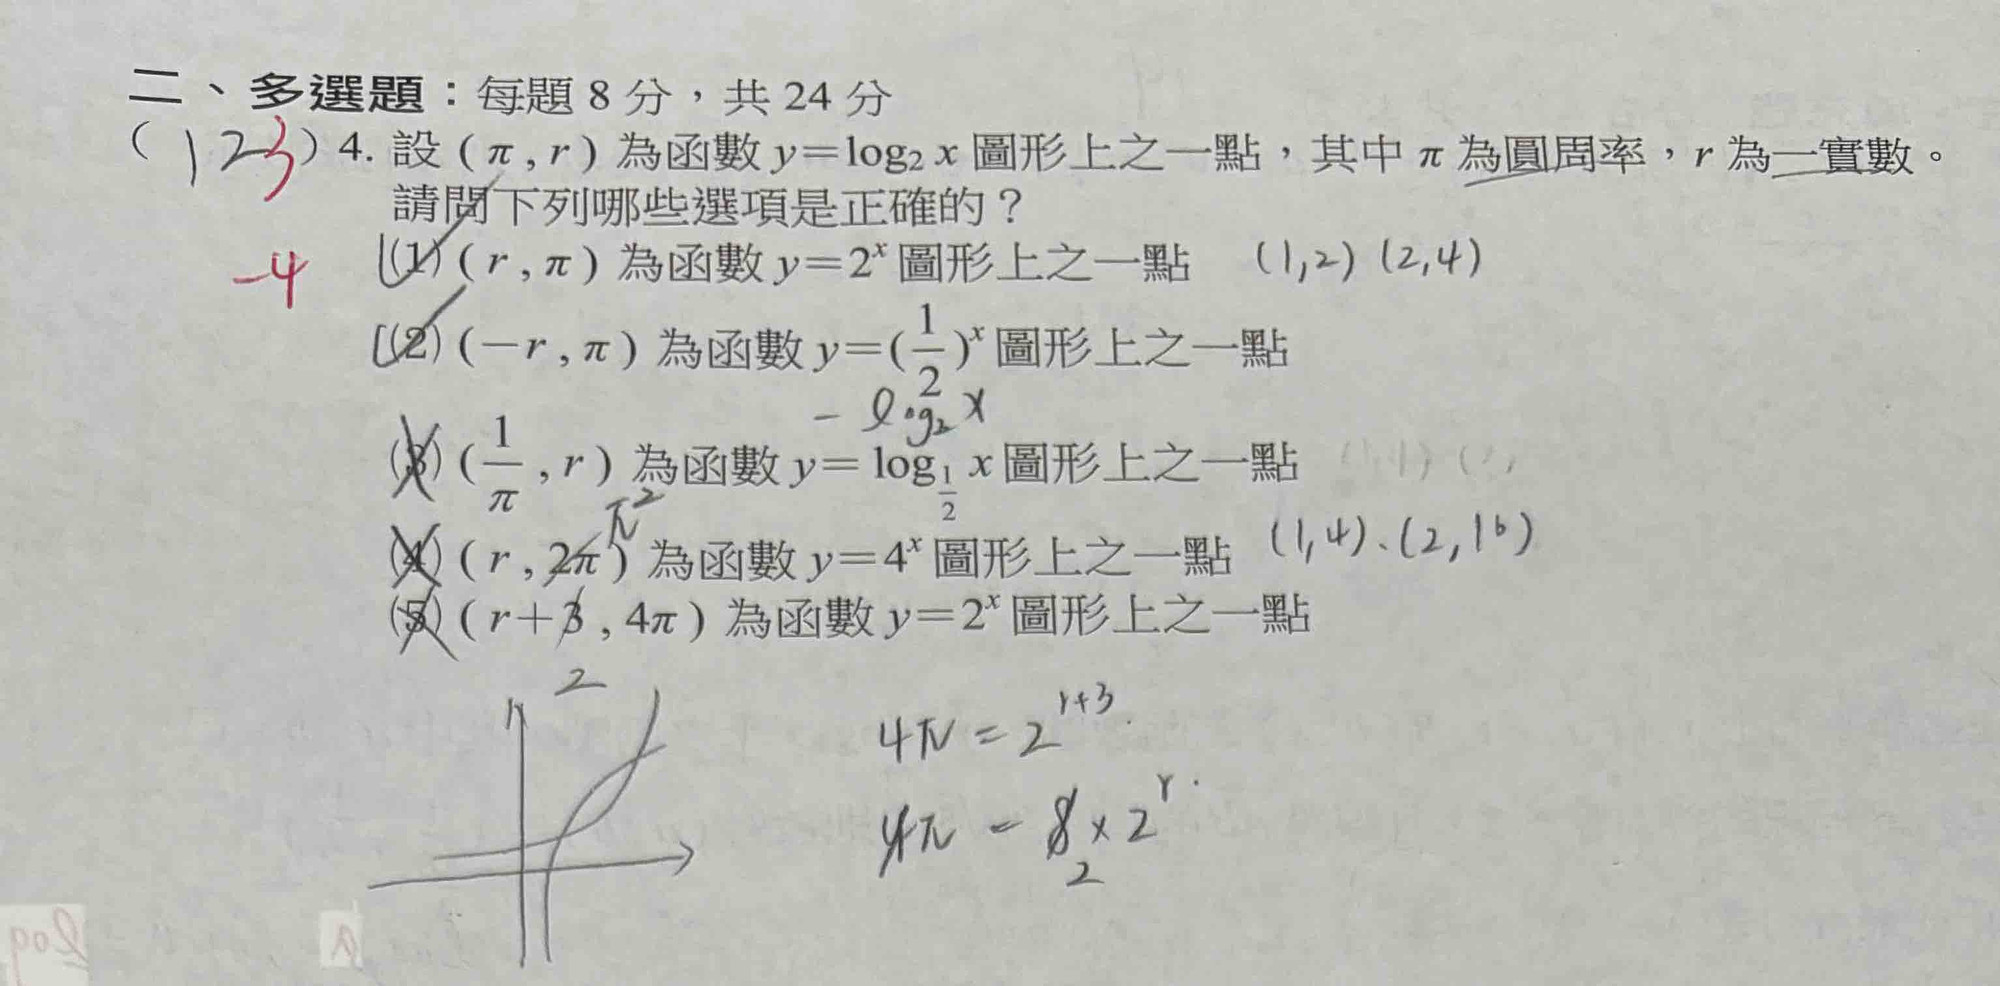 二、多選題：每題 8 分，共 24 分
(123) 4. 設 ( π , r ) 為函數 y＝log₂ x 圖形上之一點，其中 π 為圓周率，r 為一實數。
請問下列哪些選項是正確的？
-4
(1) ( r , π ) 為函數 y＝2ˣ 圖形上之一點 (1,2) (2,4)
(2) (－r , π ) 為函數 y＝(1/2)ˣ 圖形上之一點
- log₂ x
(3) (1/π , r ) 為函數 y＝log_{1/2} x 圖形上之一點
π²
(4) ( r , 2π ) 為函數 y＝4ˣ 圖形上之一點 (1,4)、(2,16)
(5) ( r＋3 , 4π ) 為函數 y＝2ˣ 圖形上之一點
2
4π = 2^{r+3}
4π = 8 × 2^r
2
log